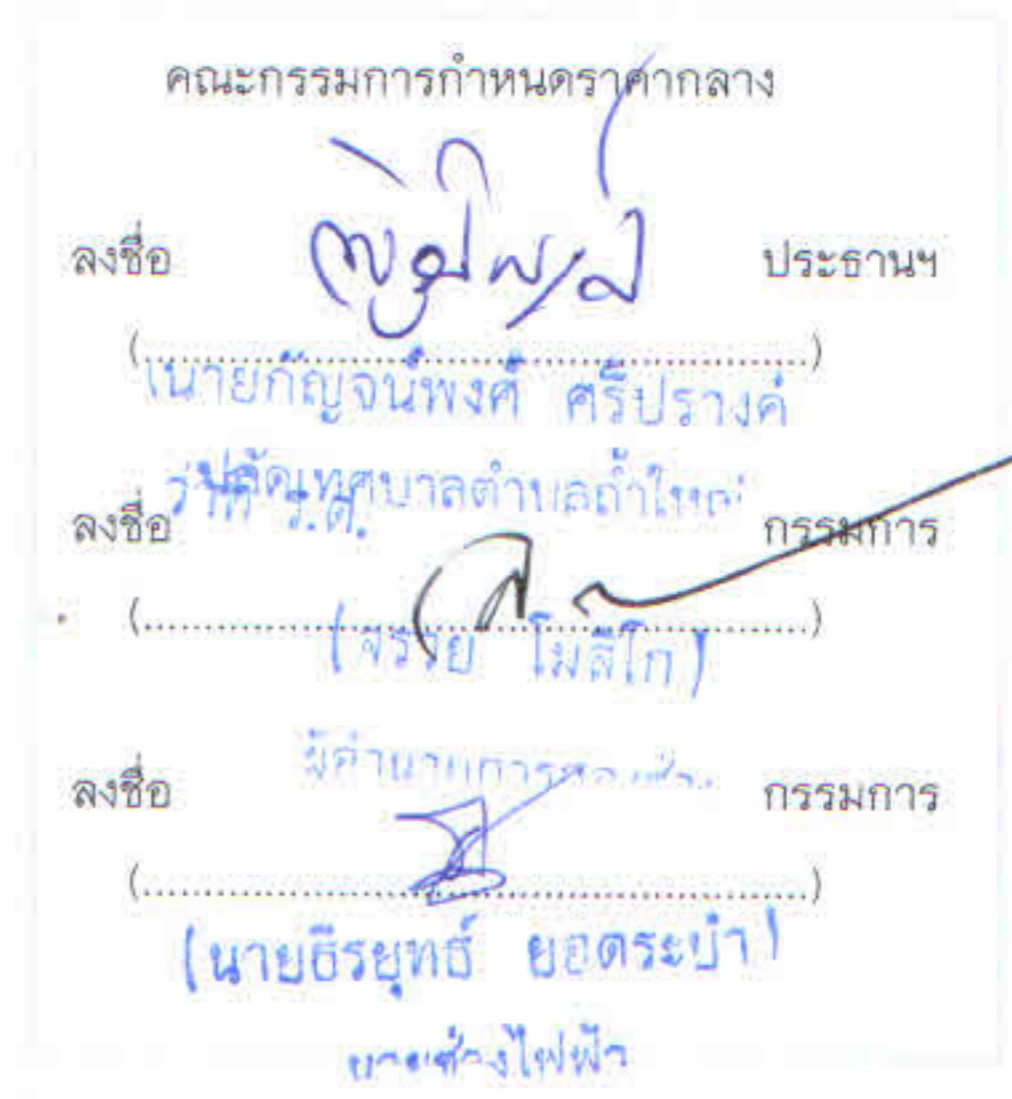 คณะกรรมการกำหนดราคากลาง
ลงชื่อ ประธานฯ
(........................................................)
(นายกัญจน์พงศ์ ศรีปรางค์
ปลัดเทศบาลตำบลถ้ำใหญ่
ลงชื่อ ว่าที่ ร.ต. กรรมการ
(........................................................)
(จรวย โมสิโก)
ผู้อำนวยการกองช่าง
ลงชื่อ กรรมการ
(........................................................)
(นายธีรยุทธ์ ยอดระบำ)
นายช่างไฟฟ้า